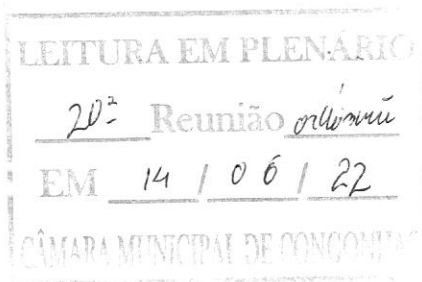 LEITURA EM PLENÁRIO
20ª Reunião
EM 14 / 06 / 22
CÂMARA MUNICIPAL DE CONGONHAS